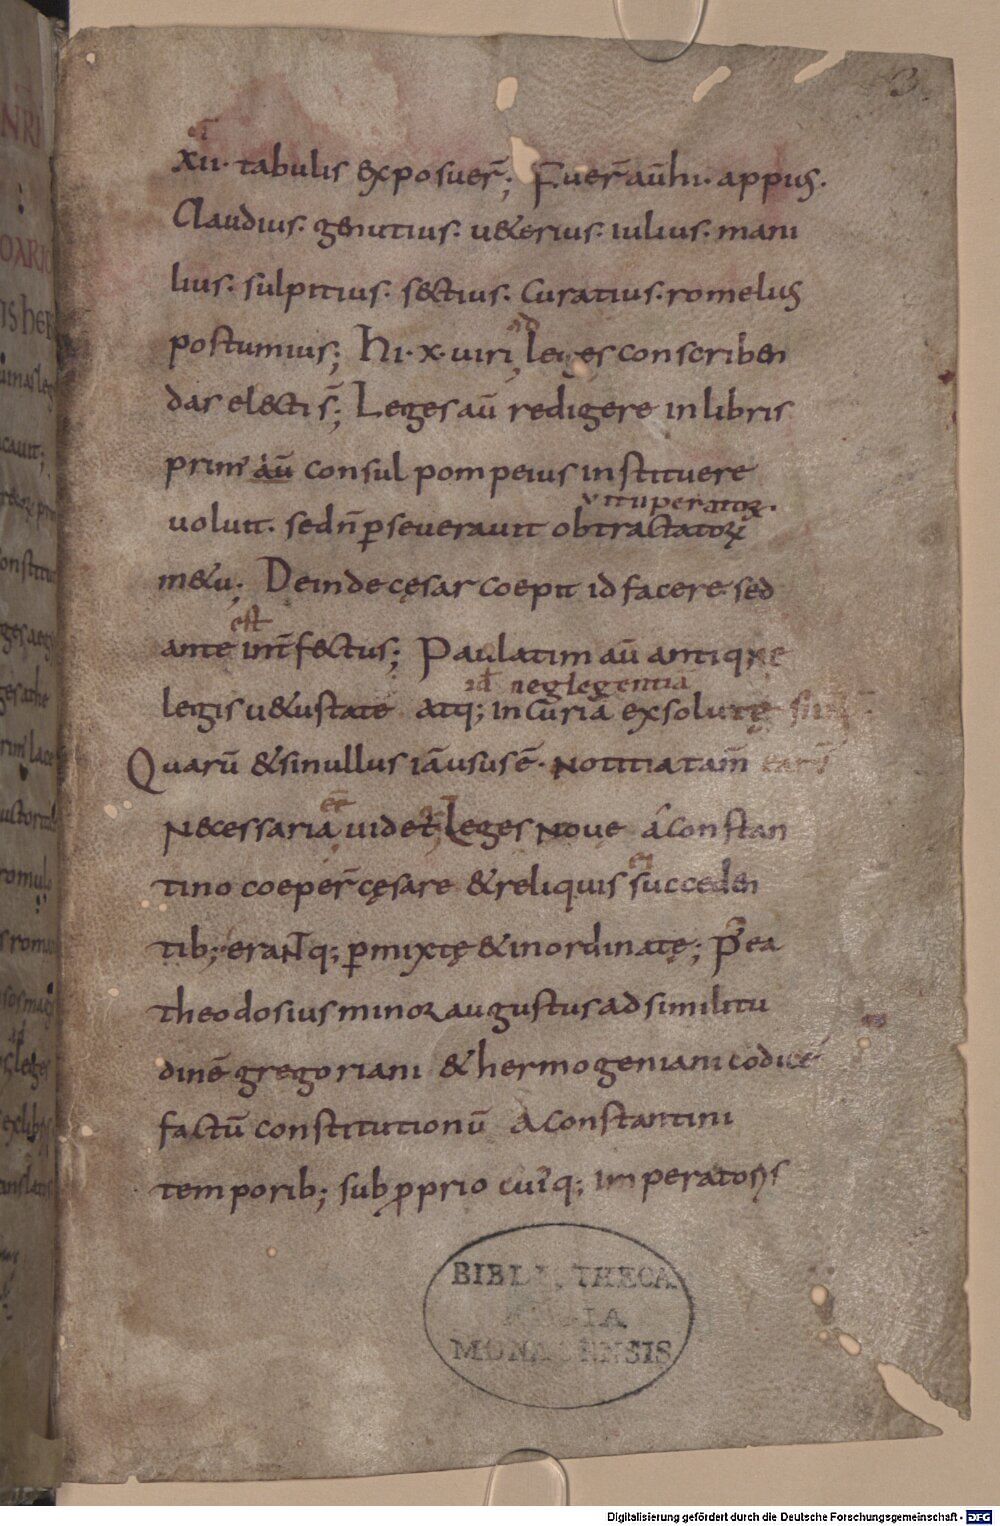 3.
xii· tabulis exposuer̄; Fuer̄ aū hi· appius·
Claudius· genutius· ueterius· iulius· mani
lius· sulpitius· sectius· Curatius· romelius
postumius; Hi· x· uiri
ad
leges conscriben
das electi s̄; Leges aū redigere in libris
prim' aū consul pompeius instituere
vituperatoꝝ·
uoluit· sed n̄ ꝑseuerauit obtractatoꝝ
metu; Deinde cęsar coepit id facere· sed
est
ante int̄fectus; Paulatim aū antique
id neglegentiā
legis uetustate atq; incuria exsolutę
Quarū etsi nullus iā usus ē· Notitia tam̄
eē
Necessaria uidet̄ Leges Noue a Constan
ei
tino coeper̄ cęsare et reliquis succeden
tib; eraNTq; ꝑmixtę et inordinatę; P̄ea
theodosius minor augustus ad similitu
dinē gregoriani et hermogeniani codicē
factū constitutionū A Constantini
temporib; sub ꝓprio cui'q; imperatoris
BIBLIOTHECA
REGIA
MONACENSIS
Digitalisierung gefördert durch die Deutsche Forschungsgemeinschaft - DFG